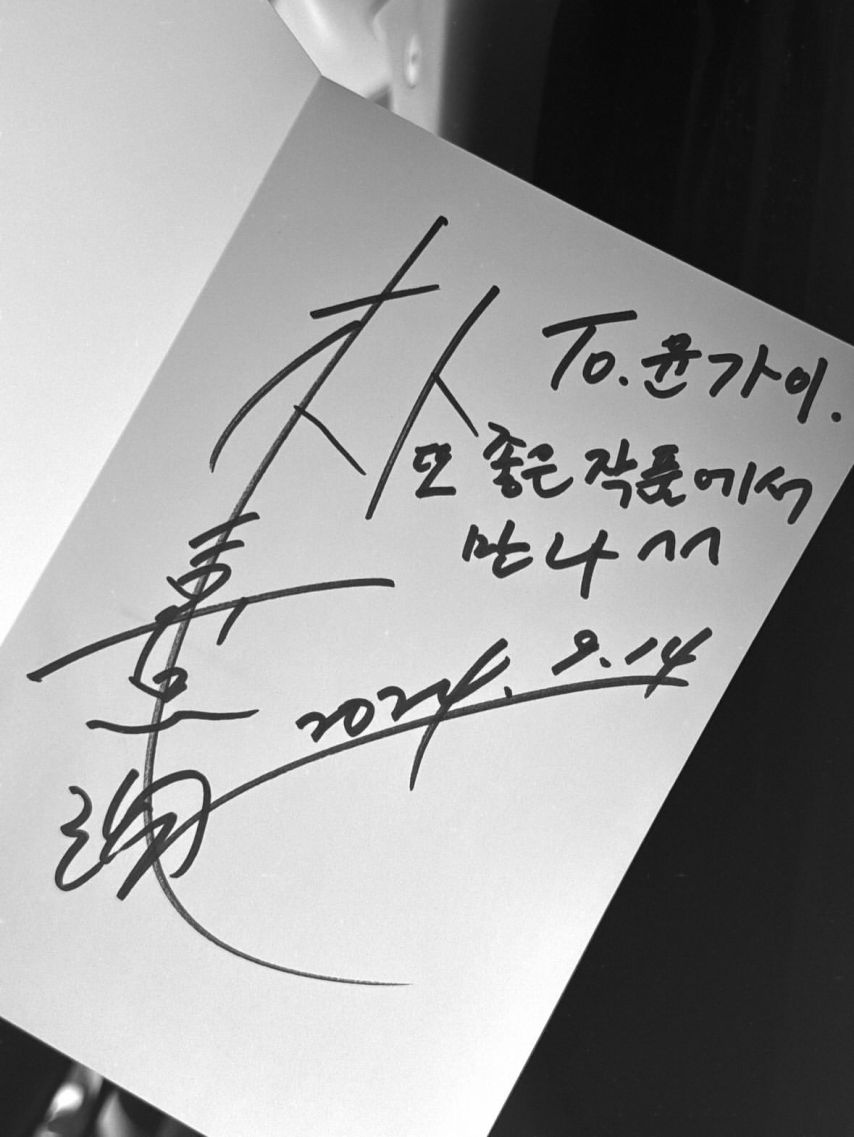 To. 윤가이.
또 좋은 작품에서
만나 ^^
2024. 9. 14
朴